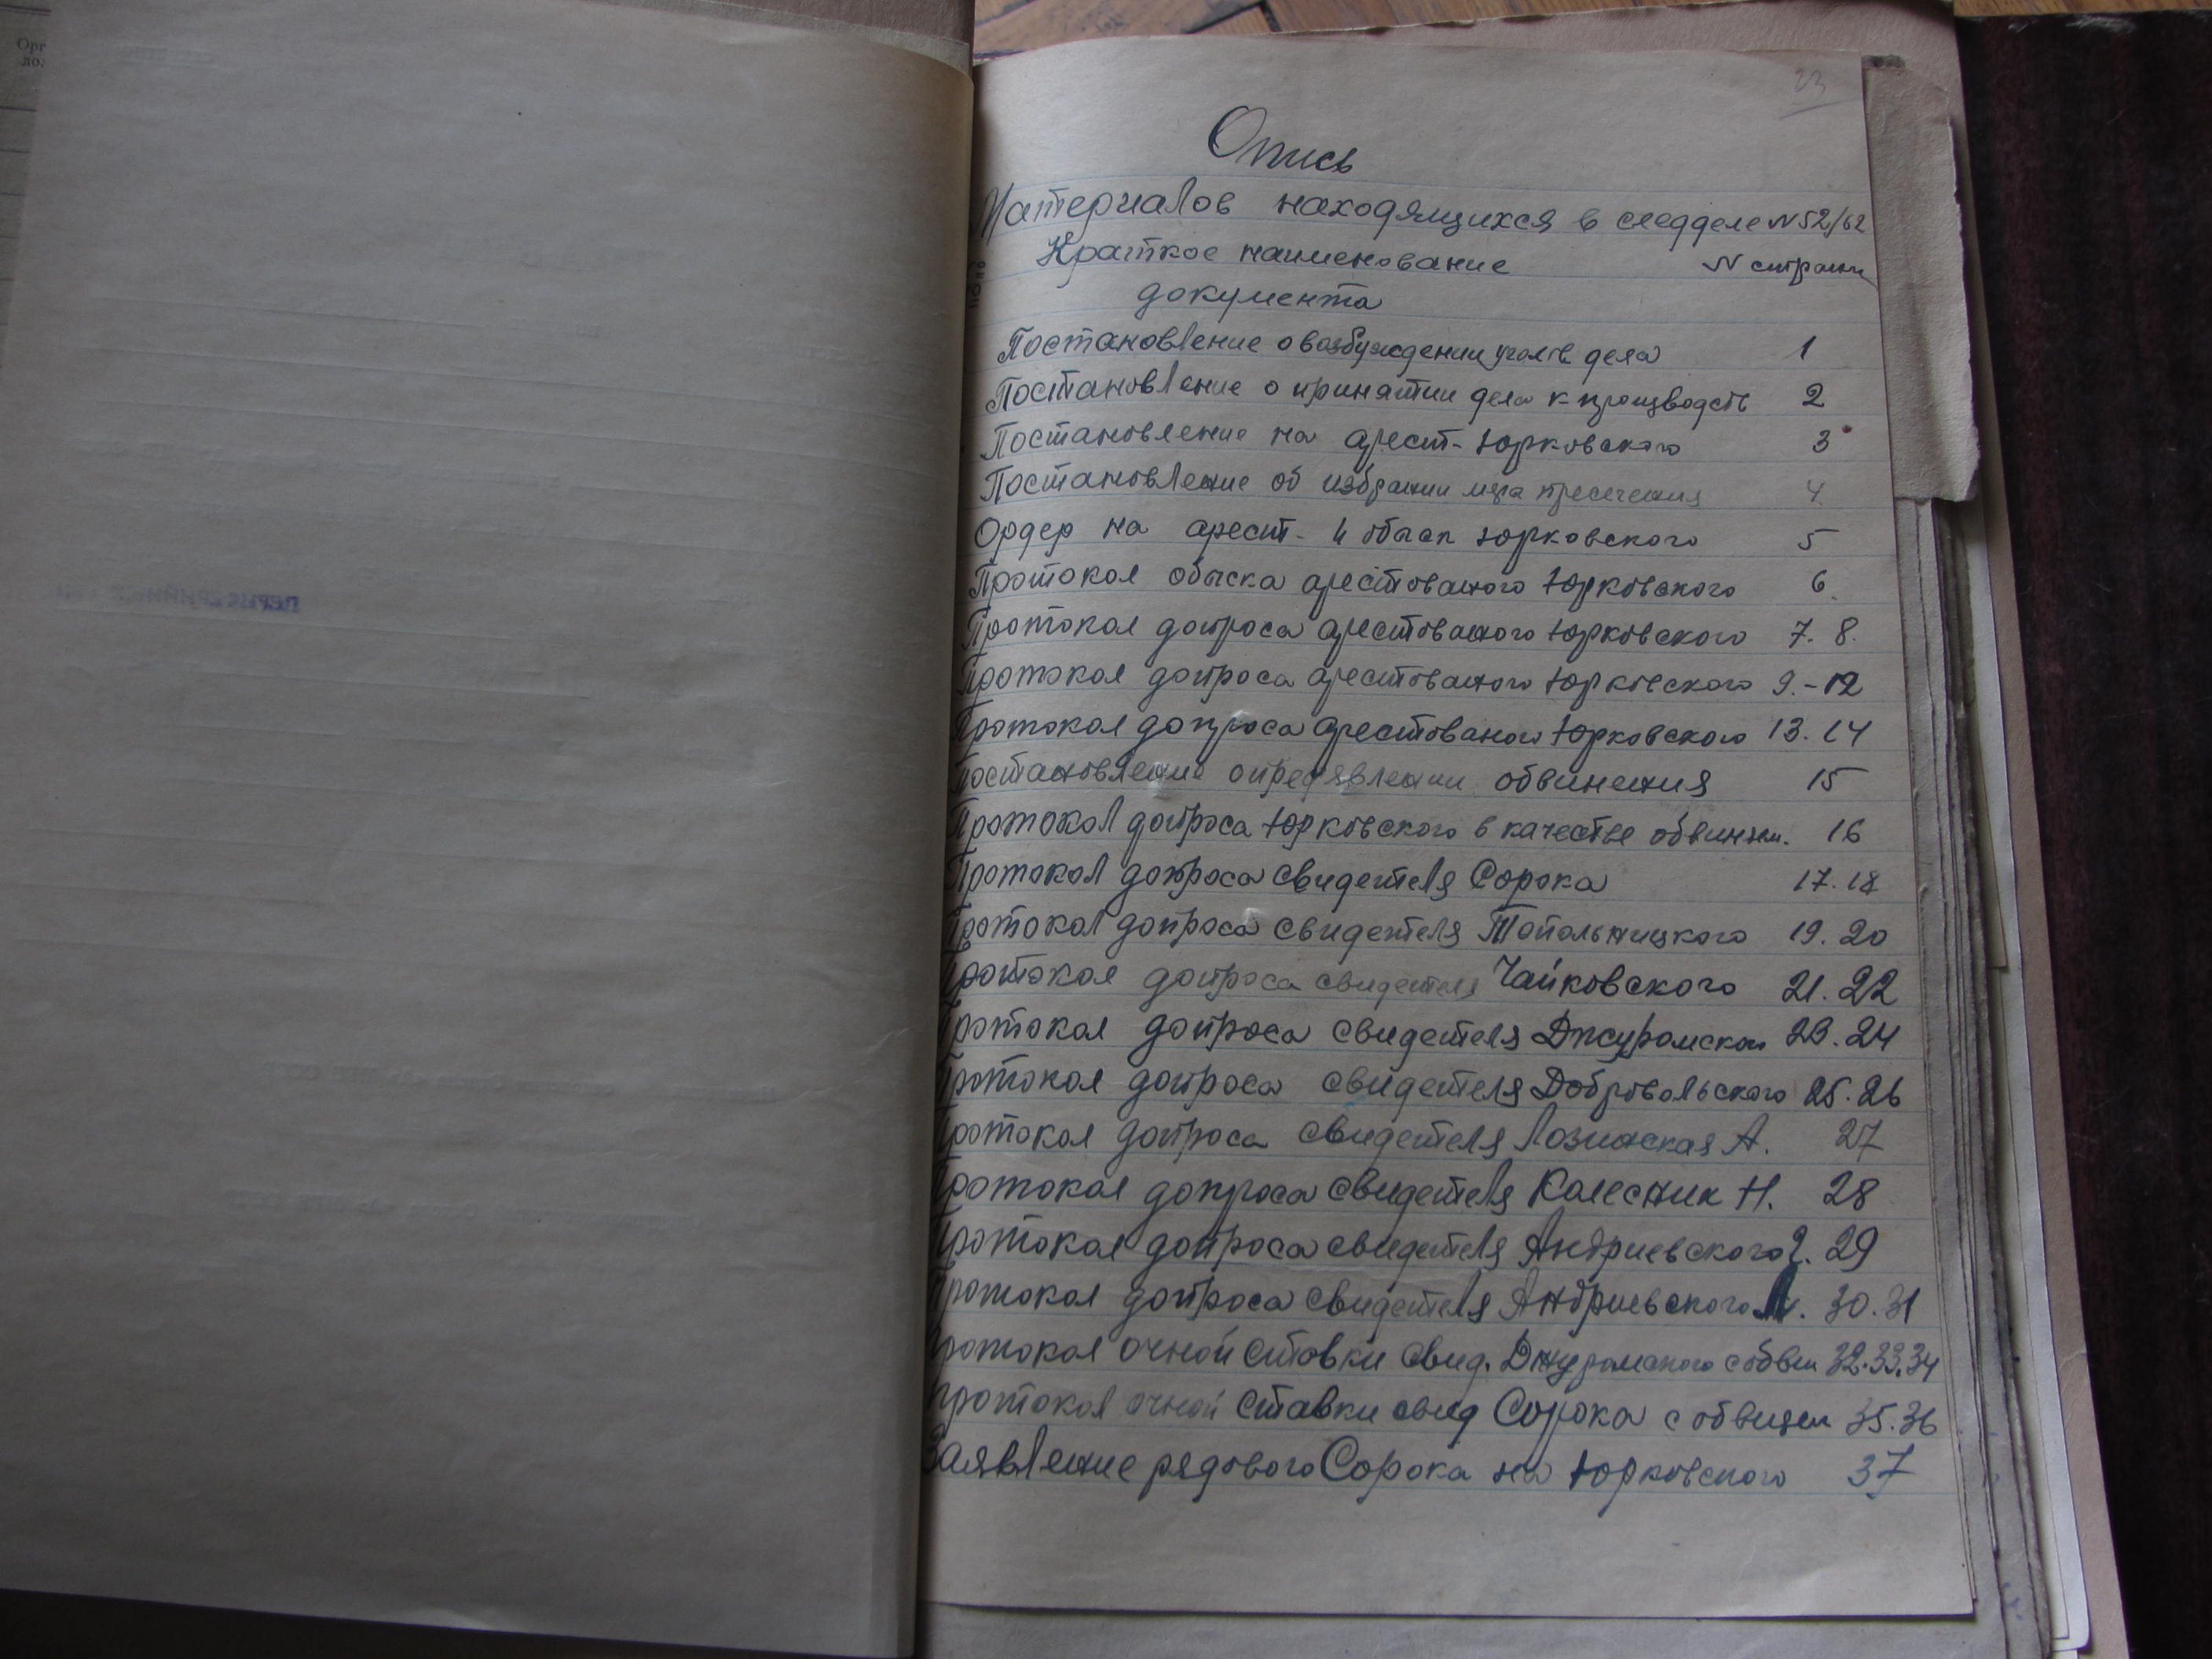 Орг
до.
23
Опись
Материалов находящихся в следделе N 52/62
Краткое наименование N страниц
документа
Постановление о возбуждении уголв дела 1
Постановление о принятии дела к производств 2
Постановление на арест- Юрковского 3
Постановление об избрании меры пресечения 4.
Ордер на арест- и обыск Юрковского 5
Протокол обыска арестованого Юрковского 6.
Протокол допроса арестованого Юрковского 7. 8.
Протокол допроса арестованого Юрковского 9.-12
Протокол допроса арестованого Юрковского 13. 14
Постановление о пред'явлении обвинения 15
Протокол допроса Юрковского в качестве обвиняем. 16
Протокол допроса свидетеля Сорока 17. 18
Протокол допроса свидетеля Топольницкого 19. 20
Протокол допроса свидетеля Чайковского 21. 22
Протокол допроса свидетеля 23. 24
Протокол допроса свидетеля Добровольского 25. 26
Протокол допроса свидетеля Лозинская А. 27
Протокол допроса свидетеля Колесник Н. 28
Протокол допроса свидетеля Андриевского 29
Протокол допроса свидетеля Андриевского 30. 31
Протокол очной ставки свид. с обвин 32. 33. 34
Протокол очной ставки свид Сорока с обвиняем 35. 36
Заявление рядового Сорока на Юрковского 37